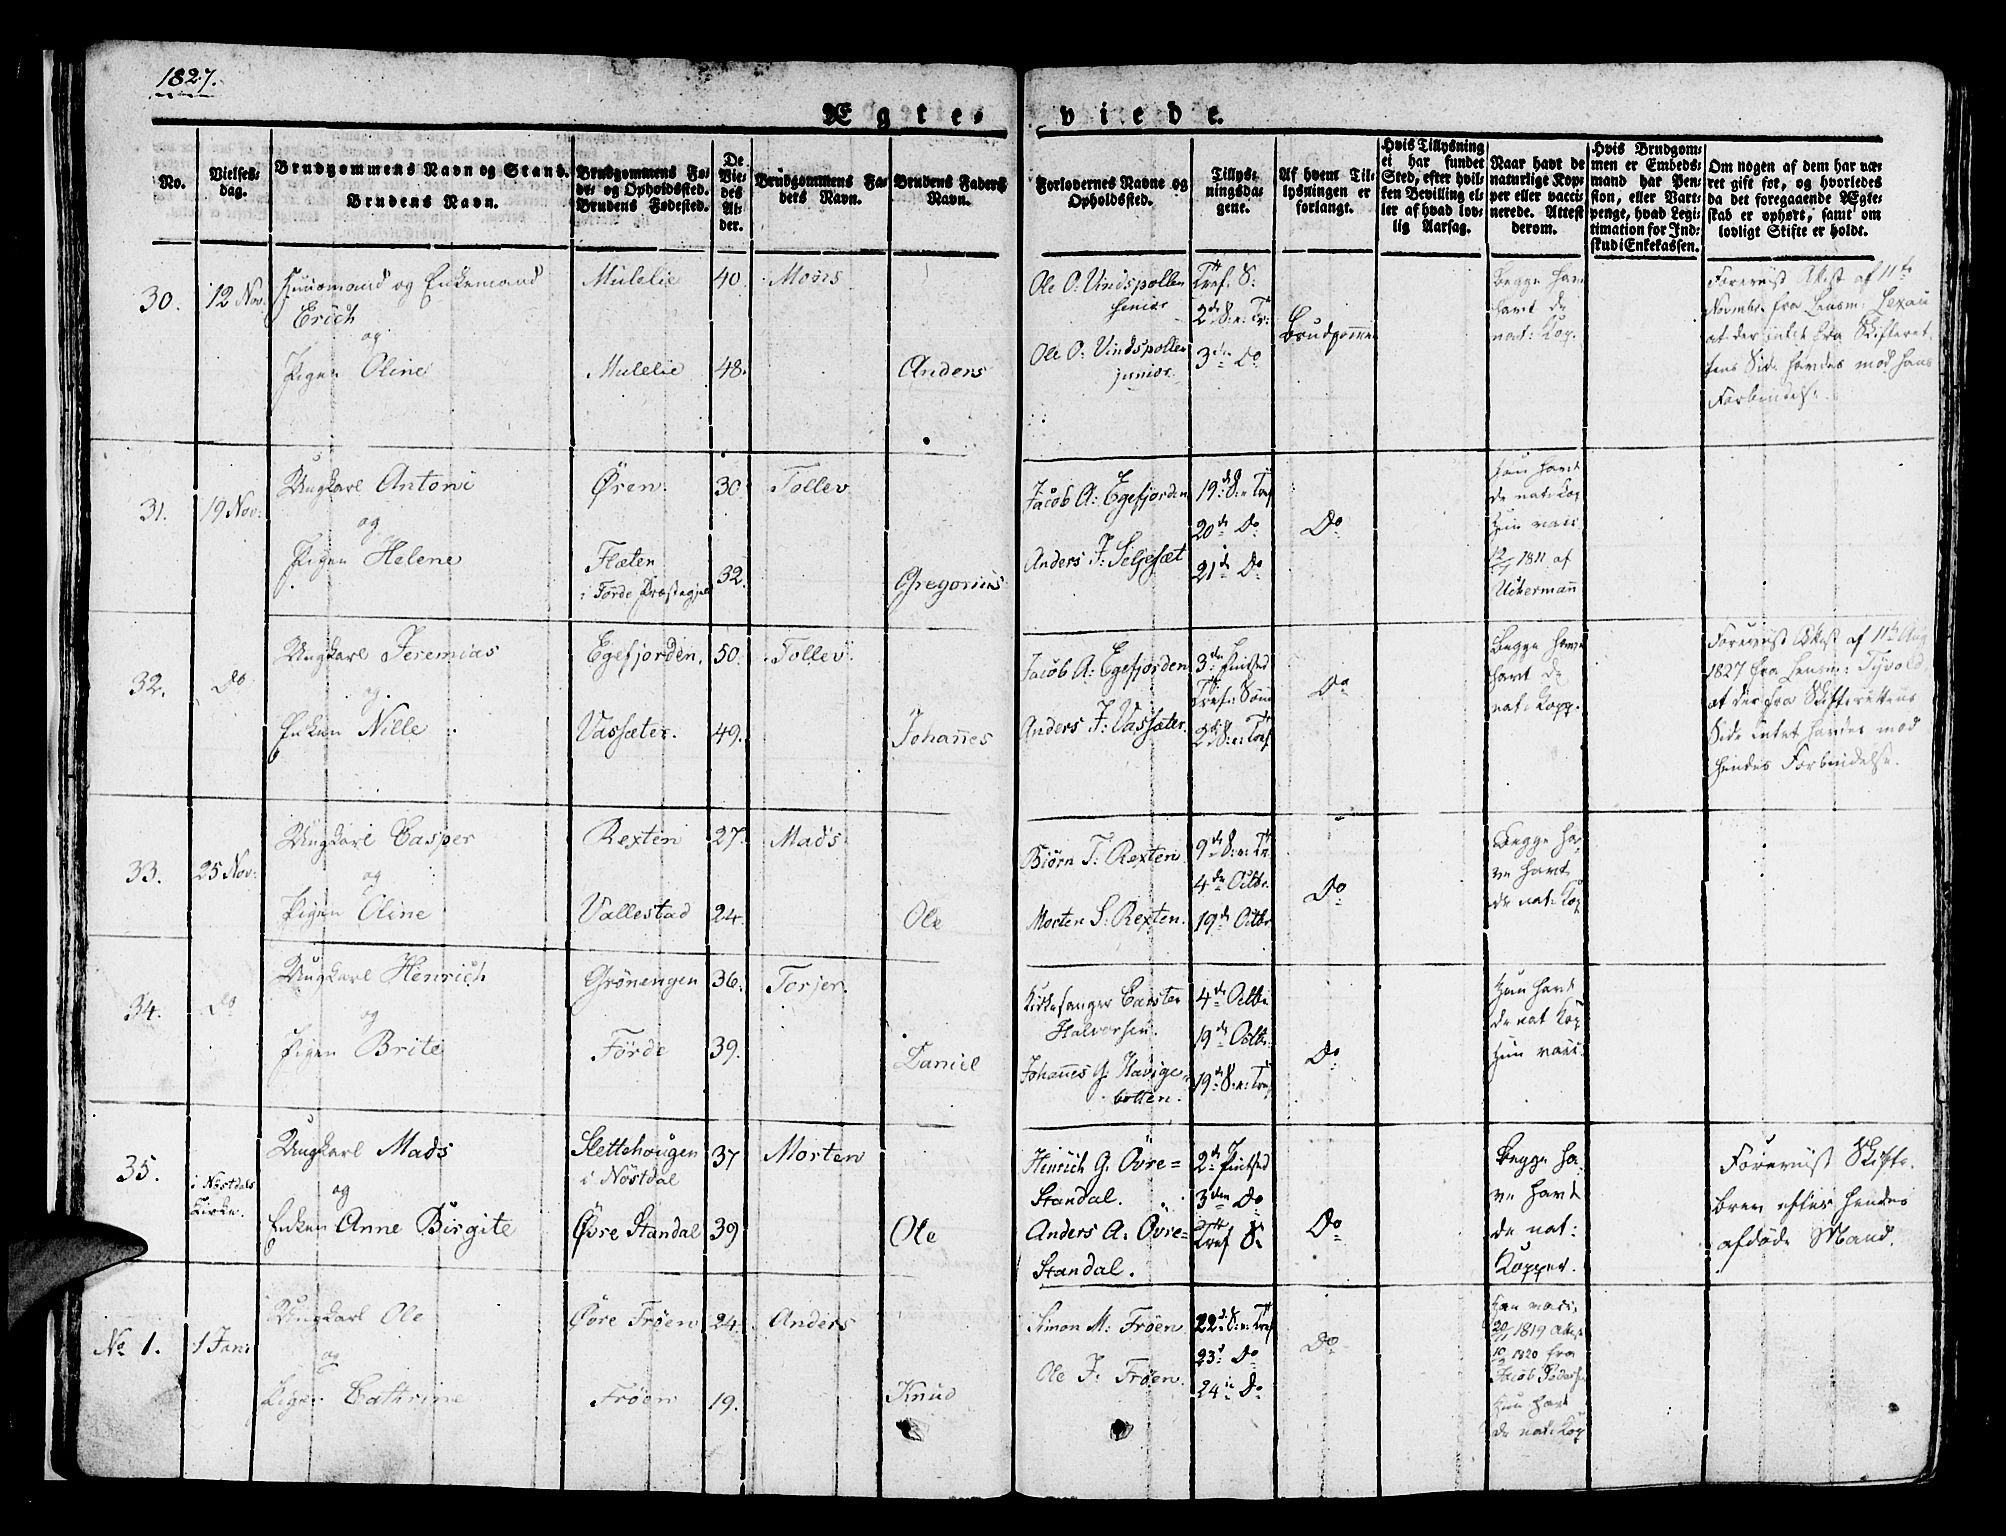 1827.
Ægte-
viede.
No.
Vielsesdag.
Brudgommens Navn og Stand.
Brudens Navn.
Brudgommens Føde- og Opholdssted.
Brudens Fødested.
De Viedes Alder.
Brudgommens Faders Navn.
Brudens Faders Navn.
Forlovernes Navne og Opholdssted.
Tillysningsdagene.
Af hvem Tillysningen er forlangt.
Hvis Tillysning ei har fundet Sted, efter hvilken Bevilling eller af hvad lovlig Aarsag.
Naar havt de naturlige Kopper eller vaccinerede. Attest derom.
Hvis Brudgommen er Embedsmand har Pension, eller Vartpenge, hvad Legitimation for Indskud i Enkekassen.
Om nogen af dem har været gift før, og hvorledes da det foregaaende Ægteskab er ophørt, samt om lovligt Skifte er holdt.
30.
12 Nov.
Huusmand og Enkemand
Erich
og
Pigen Oline
Mulelie
Mulelie
40.
48.
Mons
Anders
Ole O: Vindspollen
senior
Ole O: Vindspollen
junior
Tref. S:
2den S: e: Tr:
3die Do
Brudgommen
Begge have
havt de
nat: Kop.
Foreviist Attest af 11te
Novmbr. fra Lensm:
at der intet fra Skifteret
tens Side havdes mod hans
Forbindelse.
31.
19 Nov:
Ungkarl Antoni
og
Pigen Helene
Ören.
Flæten
i Förde Præstegjel
30
32.
Tollev
Gregorius
Jacob A: Egefjorden
Anders J: Seljesæt
19de S: e Tref
20de Do
21de Do
Do
Han havt
de nat: Kop
Hun vacc:
1811 af
Uckermann
32.
Do
Ungkarl Jeremias
og
Enken Nille
Egefjorden.
Vassæter.
50.
49.
Tollev.
Johannes
Jacob A: Egefjorden
Anders J: Vassæter.
3die Pintsed
Tref: Sönd
2den S: e: Tref
Do
Begge have
havt de
nat: Kopp.
Foreviist Attest af 11te Aug
1827 fra Lensm: Tyvold
at der fra Skifterettens
Side intet havdes mod
hendes Forbindelse.
33.
25 Nov:
Ungkarl Casper
og
Pigen Oline
Rexten
Vallestad
27.
24.
Mads.
Ole
Biörn J: Rexten
Morten S: Rexten.
9de S: e: Tr.
4de Octbr.
19de Octbr
Do
Begge ha-
ve havt
de nat: Kop
34.
Do
Ungkarl Henrich
og
Pigen Brite
Grönengen
Förde
36.
39.
Torjer.
Daniel
Kirkesanger Carsten
Halvorsen.
Johannes G. Havige-
botten.
4de Octbr.
19de Octbr.
19de S: e: Tref
Do
Han havt
de nat Kop
Hun vacc.
35.
i Nöstdals
Kirke.
Ungkarl Mads
og
Enken Anne Birgite
Slettehougen
i Nöstdal
Övre Standal
37
39
Morten
Ole
Henrich G. Övre=
Standal.
Anders A: Övre=
Standal.
2den Pintsed
3den Do
Tref S:
Do
Begge ha-
ve havt
de nat:
Kopper.
Foreviist Skifte-
brev efter hendes
afdöde Mand.
No 1.
1 Jan:
Ungkarl Ole
og
Pigen Cathrine
Övre Tröen
Tröen
24.
19.
Anders
Knud
Simon M: Tröen
Ole J: Tröen.
22de S: e: Tref
23de Do
24de Do
Do
Han vacc.
1819 Attest
1820 fra
Jacob Peders
Hun havt
de nat: Kop